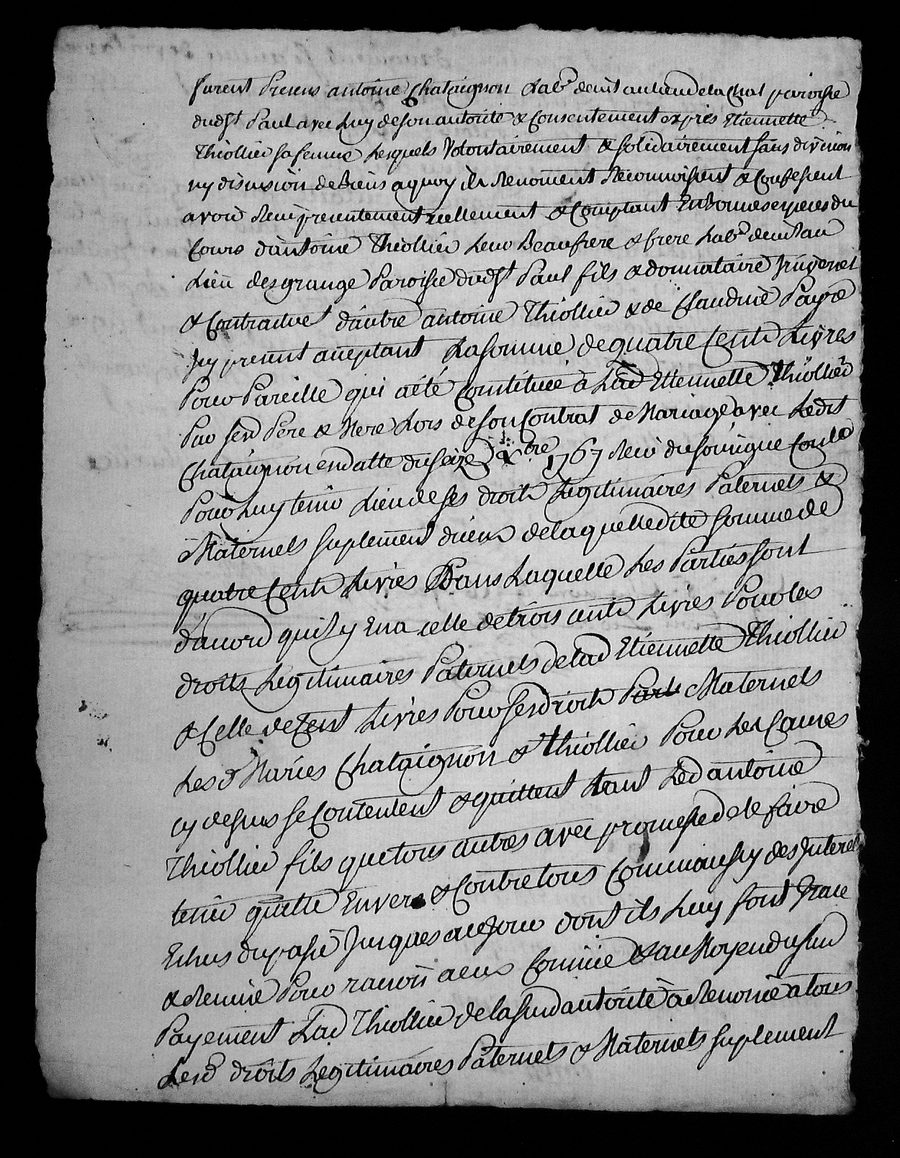 furent Presens antoine Chataignon Lab.r de lieu de la Chal paroisse
dud.t S.t Paul avec Luy de son autorité & Consentement exprès Etiennette
Thiollier sa femme Lesquels Volontairement & solidairement sans division
ny discusion de Biens a quoy ils Renoncent Reconnoissent & Confessent
avoir Reçu presentement réellement & Comptant En bonnes especes du
Cours d'antoine Thiollier Leur Beaufrere & frere Lab.r demeurant
Lieu des grange Paroisse dud.t S.t Paul fils & donnataire
& Contractuel d'autre antoine Thiollier & de Claudine Payre
Icy present acceptant La somme de quatre Cents Livres
Pour Pareille qui a été Constituée à Lad. Etiennette Thiollier
Par sesd. Pere & Mere Lors de son Contrat de Mariage avec Ledit
Chataignon en datte du seize 1767 Reçu du
Pour Luy tenir Lieu de ses droits Legitimaires Paternels &
Maternels suplement d'iceux de laquelle dite somme de
quatre Cents Livres Dans Laquelle Les Parties sont
d'acord quil y En a celle de trois cents Livres Pour les
droits Legitimaires Paternels de lad. Etiennette Thiollier
& Celle de Cent Livres Pour ses droits Part Maternels
Lesd. Mariés Chataignon & Thiollier Pour Les Causes
cy dessus se Contentent & quittent tant Led. antoine
Thiollier fils que tous autres avec promesse de le faire
tenir quitte Envers & Contre tous Comm'aussy des Interets
Echus du passé Jusques a ce Jour dont ils Luy font Grace
& Remise Pour raison a eux Connüe & au Moyen du susd.
Payement Lad. Thiollier de la susd. autorité à Renoncé a tous
Lesd. droits Legitimaires Paternels & Maternels suplement